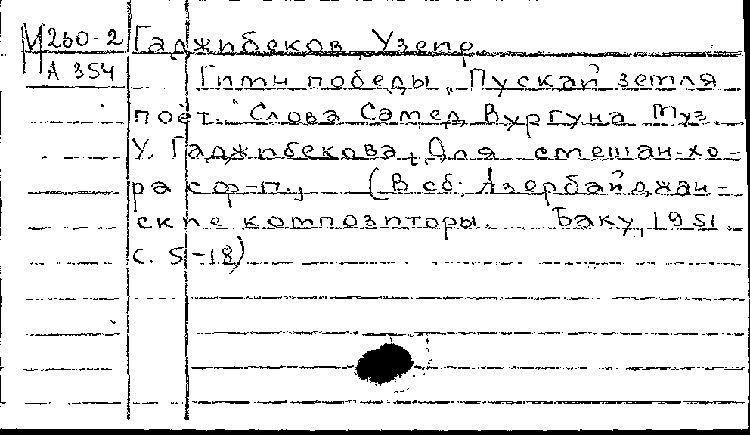 М260-2 Гаджибеков, Узеир.
А 354
Гимн победы „Пускай земля
поёт." Слова Самед Вургуна Муз.
У. Гаджибекова, Для смешан-хо-
ра с ф-п., (В сб: Азербайджан-
ские композиторы. Баку, 1951.
с. 5-18)